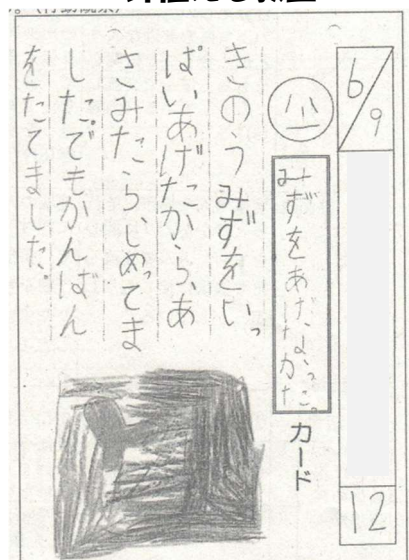 6/9
12
みずをあげなかった。
カード
きのうみずをいっ
ぱいあげたから、あ
さみたら、しめってま
した。でもかんばん
をたてました。